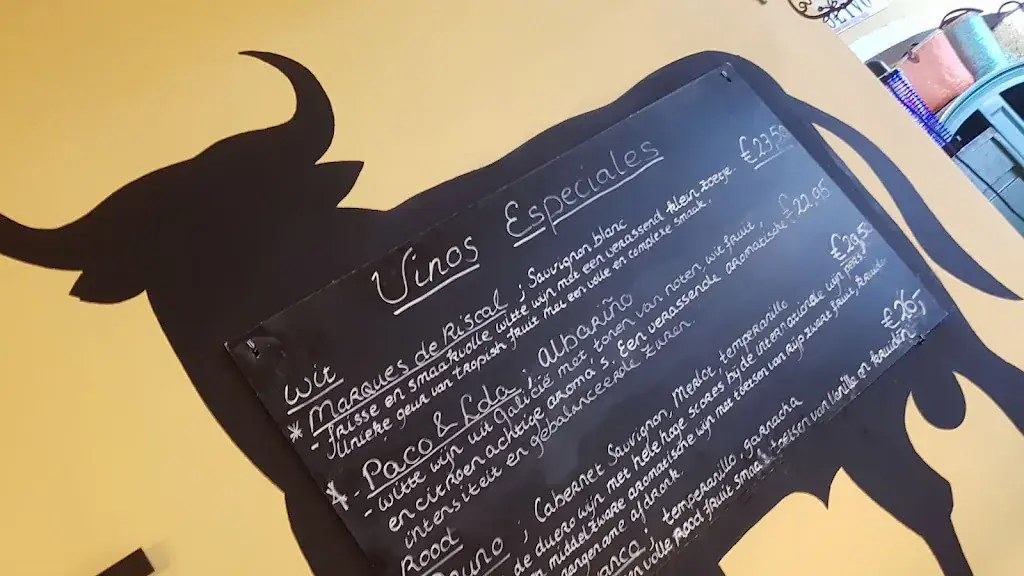 Vinos Especiales
Wit
* Marques de Riscal ; Sauvignon blanc €23,50
- frisse en smaakvolle witte wijn met een verrassend klein zoetje.
- Unieke geur van tropisch fruit met een volle en complete smaak.
* - Paco & Lola ; albariño €22,95
- witte wijn uit Galicië met tonen van noten, wit fruit,
en citroenachtige aroma's. Een verassende aromatische
intensiteit en gebalanceerde zuren.
Rood
; Cabernet Sauvignon, Merlot, temperanillo
de duero wijn met hele hoge scores bij de internationale wijn
middelzware aromatische wijn met toetsen van rijp zwart fruit,
aangename afdronk
; temperanillo, garnacha €26,-
volle Rood fruit smaak toetsen van Vanille en